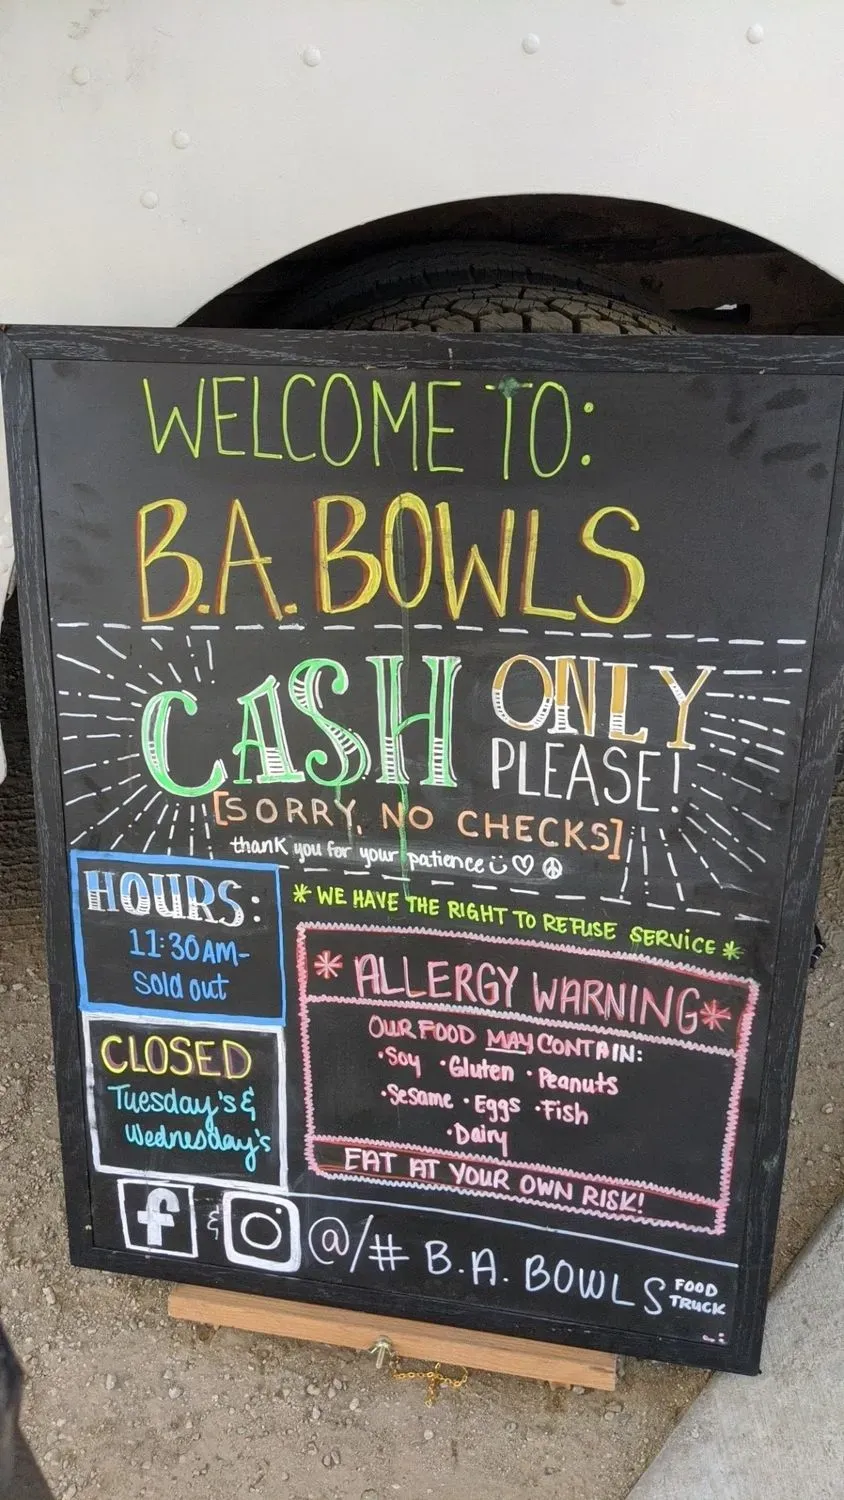 WELCOME TO:
B.A. BOWLS
CASH ONLY
PLEASE!
[SORRY, NO CHECKS]
thank you for your patience
* WE HAVE THE RIGHT TO REFUSE SERVICE *
HOURS:
11:30AM-
Sold out
CLOSED
Tuesday's &
Wednesday's
* ALLERGY WARNING *
OUR FOOD MAY CONTAIN:
•Soy •Gluten •Peanuts
•Sesame •Eggs •Fish
•Dairy
EAT AT YOUR OWN RISK!
f & @/# B.A. BOWLS FOOD
TRUCK